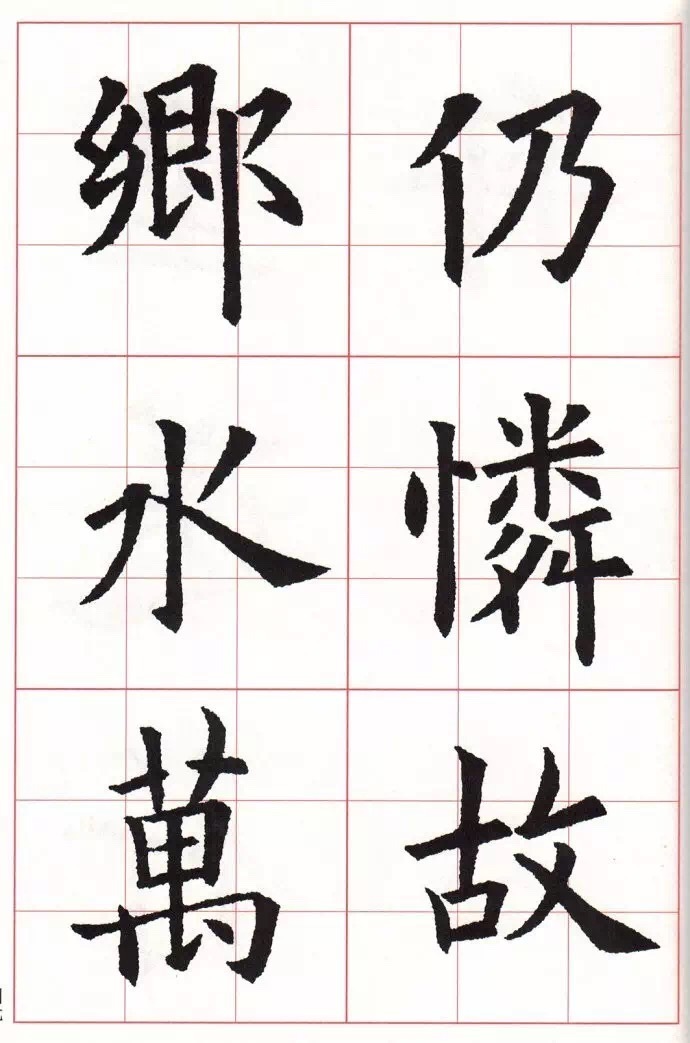 仍憐故
鄉水萬